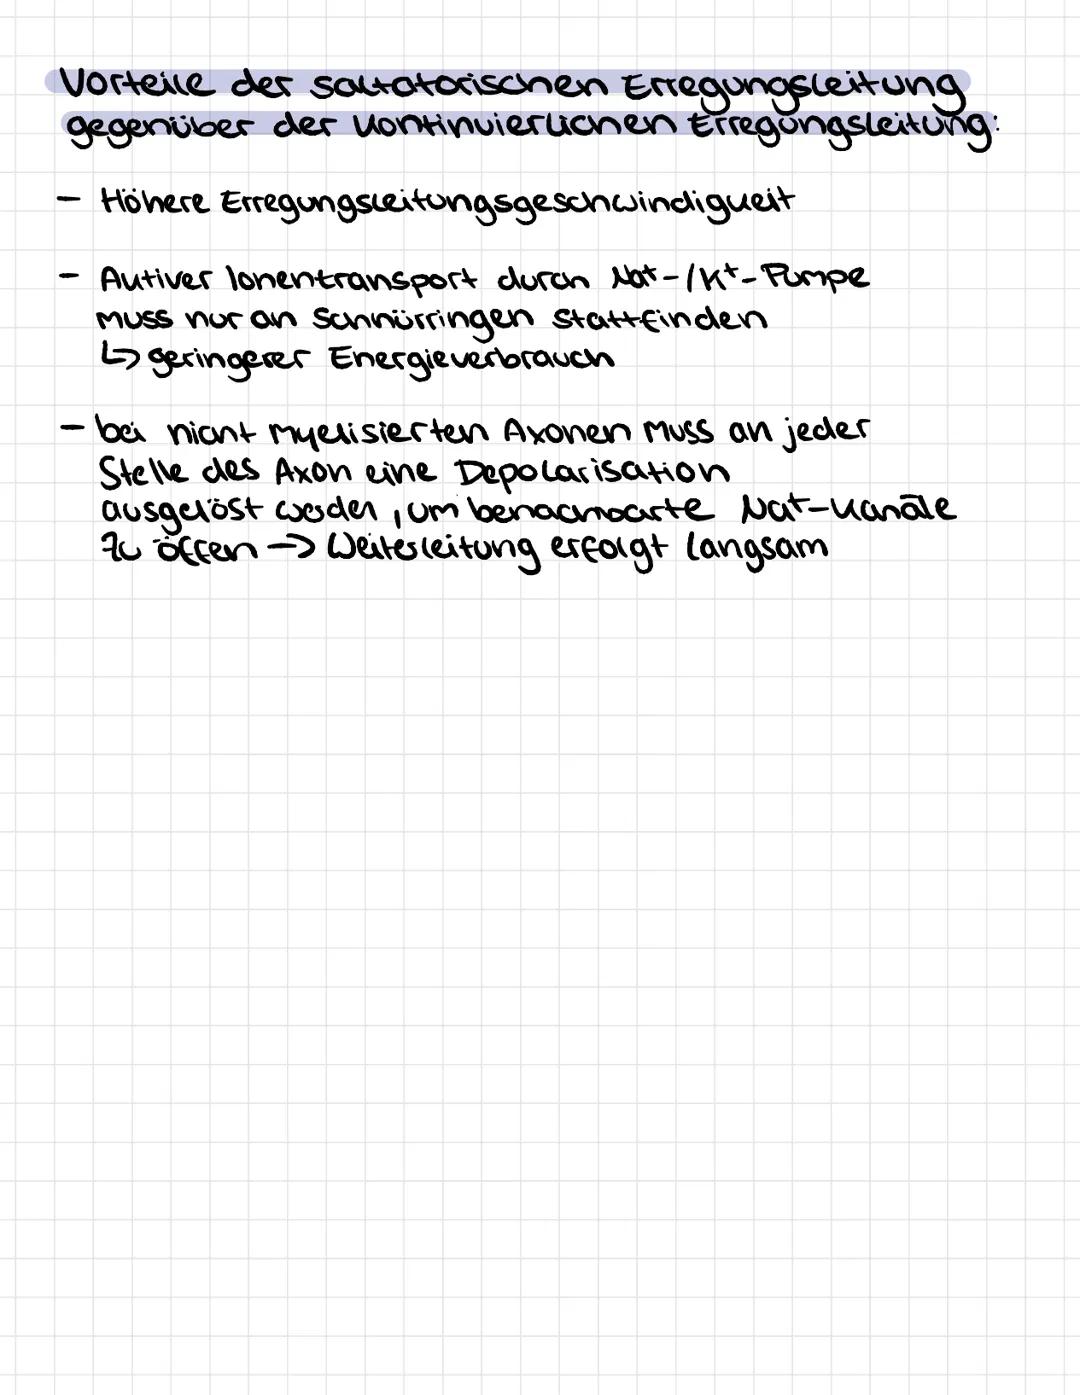 Vorteile der saltatorischen Erregungsleitung
gegenüber der kontinuierlichen Erregungsleitung:
- Höhere Erregungsleitungsgeschwindigkeit
- Aktiver Ionentransport durch Na+-/K+-Pumpe
muss nur an Schnürringen stattfinden
↳ geringerer Energieverbrauch
- bei nicht myelisierten Axonen muss an jeder
Stelle des Axon eine Depolarisation
ausgelöst werden, um benachbarte Na+-Kanäle
zu öffen → Weiterleitung erfolgt langsam